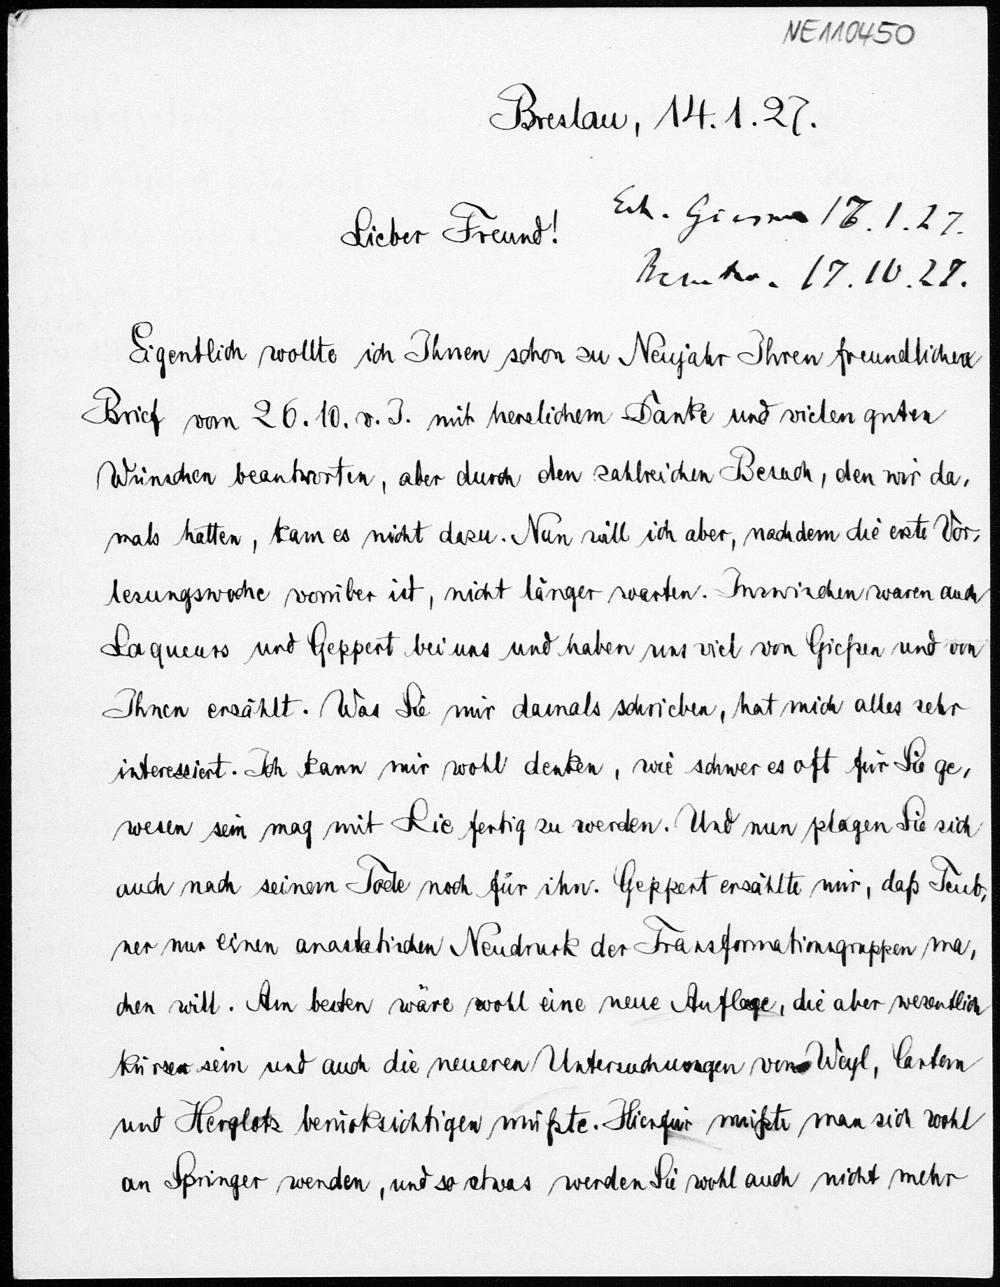 NE110450
Breslau, 14.1.27.
Erh. Giessen 16.1.27.
Lieber Freund!
Beantw. 17.10.27.
Eigentlich wollte ich Ihnen schon zu Neujahr Ihren freundlichen
Brief vom 26.10.v.J. mit herzlichem Danke und vielen guten
Wünschen beantworten, aber durch den zahlreichen Besuch, den wir da-
mals hatten, kam es nicht dazu. Nun will ich aber, nachdem die erste Vor-
lesungswoche vorüber ist, nicht länger warten. Inzwischen waren auch
Laqueurs und Geppert bei uns und haben uns viel von Gießen und von
Ihnen erzählt. Was Sie mir damals schrieben, hat mich alles sehr
interessiert. Ich kann mir wohl denken, wie schwer es oft für Sie ge-
wesen sein mag mit Lie fertig zu werden. Und nun plagen Sie sich
auch nach seinem Tode noch für ihn. Geppert erzählte mir, daß Teub-
ner nur einen anastatischen Neudruck der Transformationsgruppen ma-
chen will. Am besten wäre wohl eine neue Auflage, die aber wesentlich
kürzer sein und auch die neueren Untersuchungen von Weyl, Cartan
und Herglotz berücksichtigen müßte. Hierfür müßte man sich wohl
an Springer wenden, und so etwas werden Sie wohl auch nicht mehr